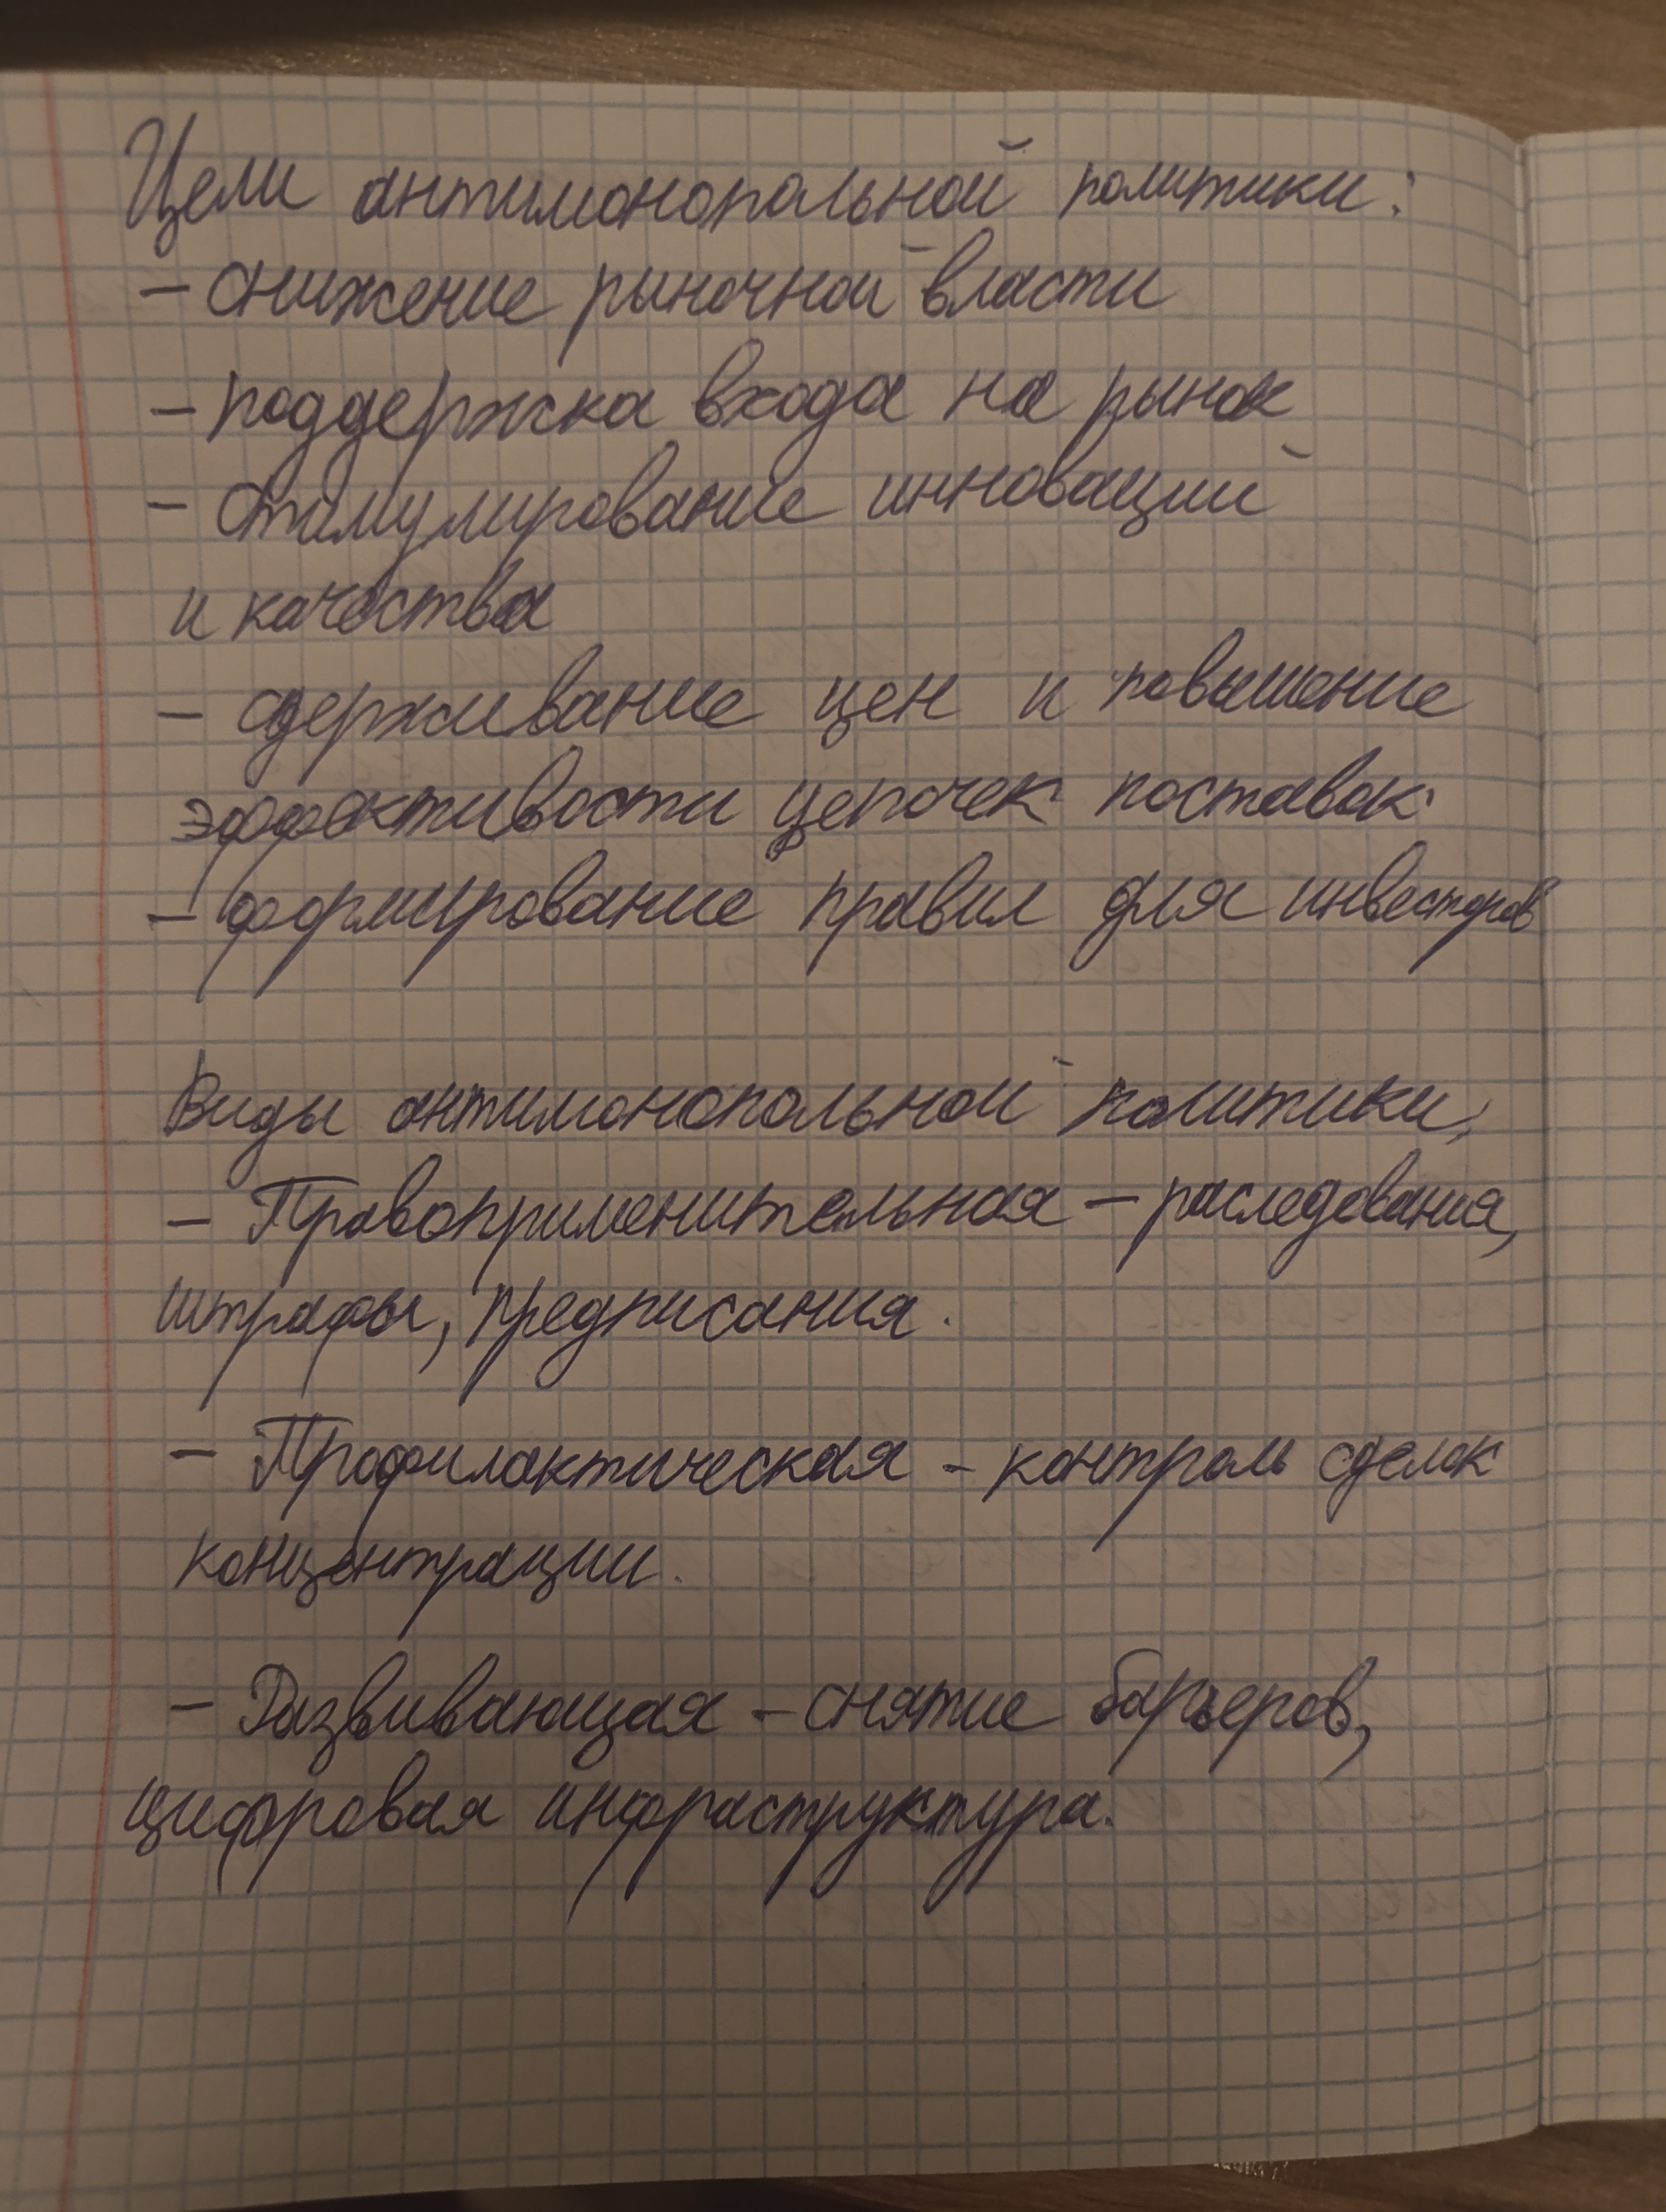 Цели антимонопольной политики:
- снижение рыночной власти
- поддержка входа на рынок
- стимулирование инноваций
и качества
- сдерживание цен и повышение
эффективости цепочек поставок
- формирование правил для инвесторов
Виды антимонопольной политики:
- Правоприменительная - раследования,
штрафы, предписания.
- Профилактическая - контроль сделок
концентрации.
- Развивающая - снятие барьеров,
цифровая инфраструктура.